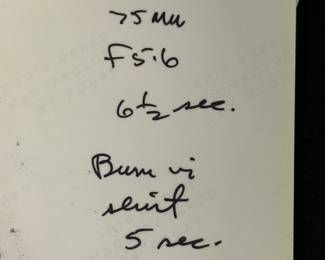 75 MM
F 5.6
6 ½ sec.
Burn in
shirt
5 sec.